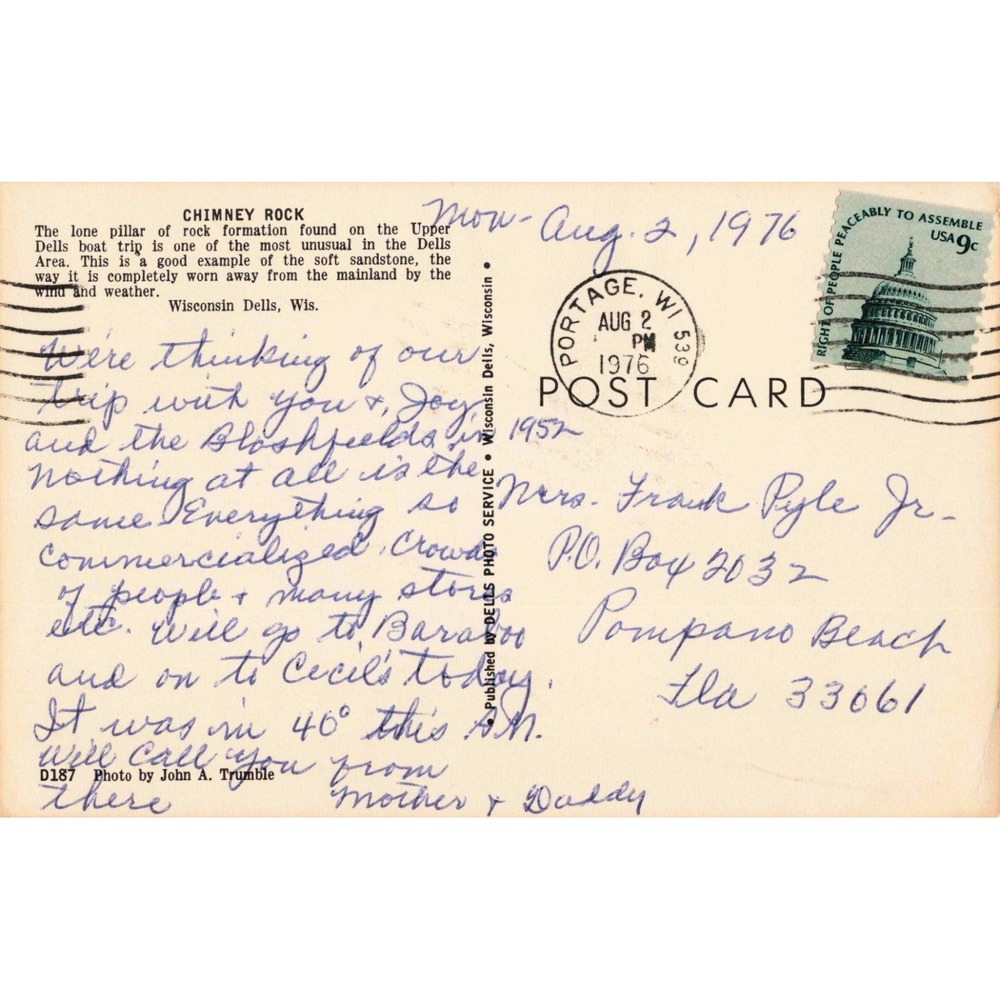 CHIMNEY ROCK
The lone pillar of rock formation found on the Upper
Dells boat trip is one of the most unusual in the Dells
Area. This is a good example of the soft sandstone, the
way it is completely worn away from the mainland by the
wind and weather.
Wisconsin Dells, Wis.
Mon- Aug. 2, 1976
RIGHT OF PEOPLE PEACEABLY TO ASSEMBLE
USA 9c
PORTAGE, WI 539
AUG 2
PM
1976
POST CARD
We're thinking of our
trip with you +, Joy,
and the Blashfields in 1952
Nothing at all is the
same. Everything so
commercialized. Crowds
of people + many stores
etc. Will go to Baraboo
and on to Cecil's today.
It was in 40° this A.M.
Will call you from
there Mother + Daddy
Mrs. Frank Pyle Jr-
P.O. Box 2032
Pompano Beach
Fla 33061
• Published by DELLS PHOTO SERVICE • Wisconsin Dells, Wisconsin •
D187 Photo by John A. Trumble